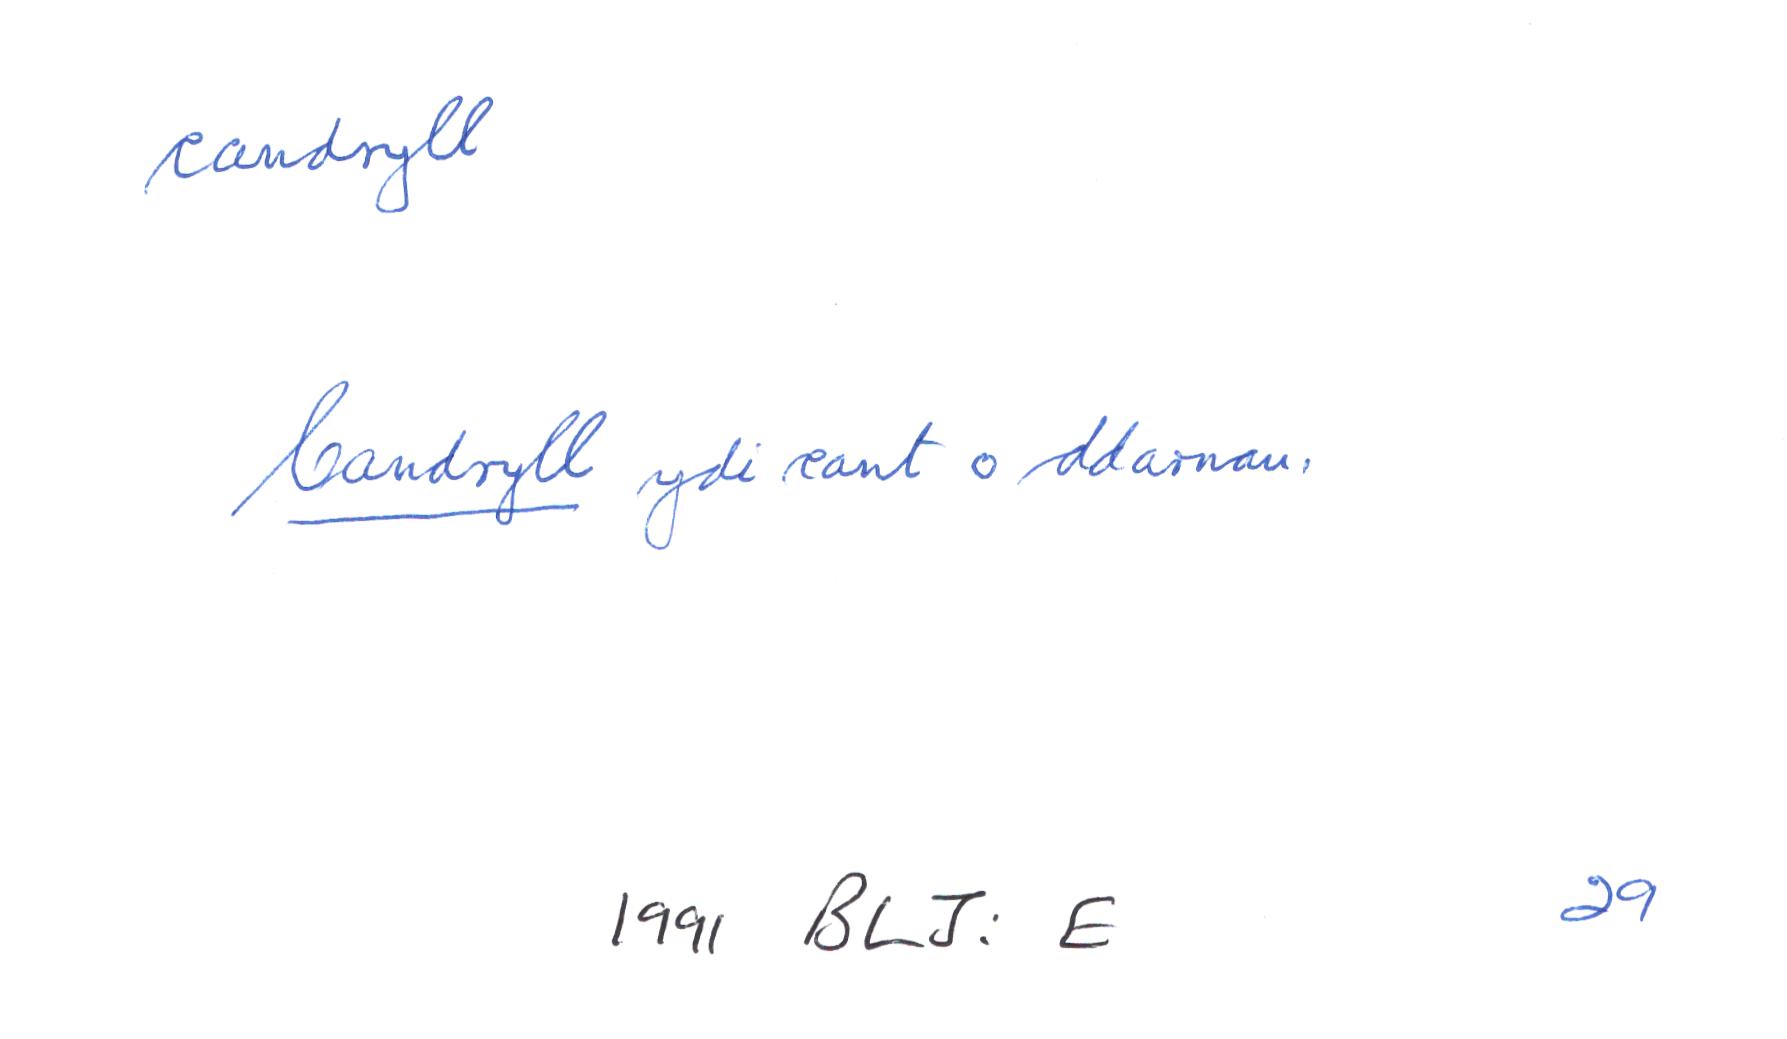 candryll
Candryll ydi cant o ddarnau.
1991 BLJ: E 29